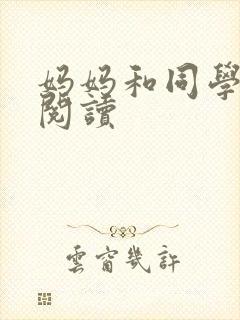 妈妈和同學
閱讀
雲窗幾許